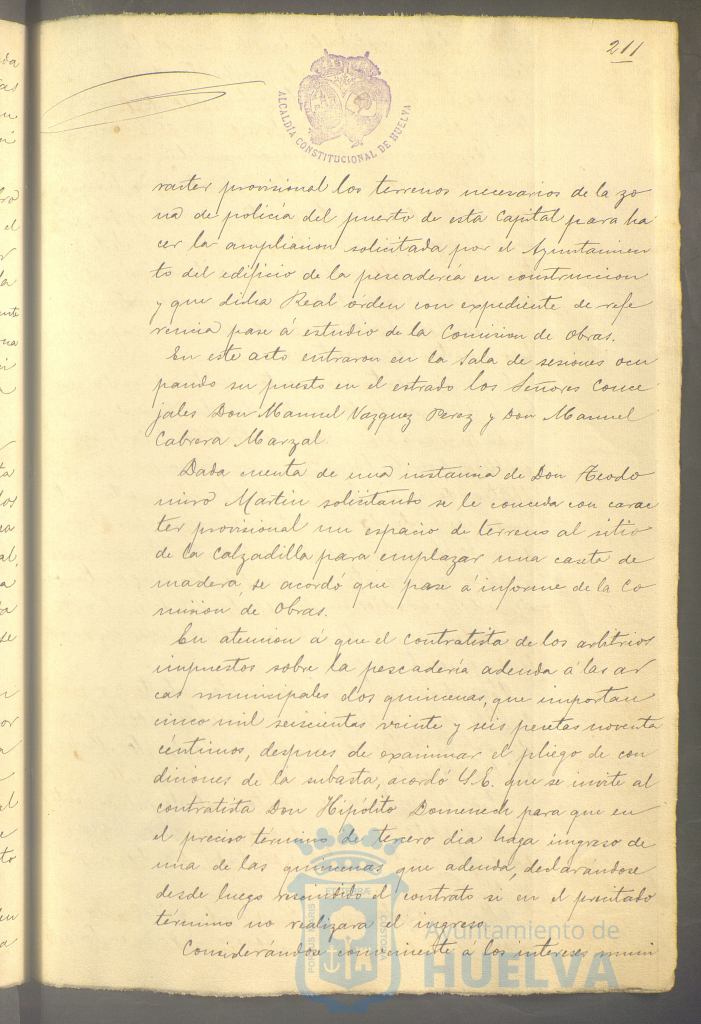 211
ALCALDÍA CONSTITUCIONAL DE HUELVA
racter provisional los terrenos necesarios de la zo
na de policía del puerto de esta Capital para ha
cer la ampliacion solicitada por el Ayuntamien
to del edificio de la pescadería en construccion
y que dicha Real órden con expediente de refe
rencia pase á estudio de la Comision de Obras.
En este acto entraron en la Sala de sesiones ocu
pando su puesto en el estrado los Señores Conce
jales Don Manuel Vazquez Perez y Don Manuel
Cabrera Marzal.
Dada cuenta de una instancia de Don Teodo
miro Martin solicitando se le conceda con carac
ter provisional un espacio de terreno al sitio
de la Calzadilla para emplazar una caseta de
madera, se acordó que pase á informe de la Co
mision de Obras.
En atencion á que el contratista de los arbitrios
impuestos sobre la pescadería adeuda á las ar
cas municipales dos quincenas, que importan
cinco mil seiscientas veinte y seis pesetas noventa
céntimos, despues de examinar el pliego de con
diciones de la subasta, acordó S.E. que se invite al
contratista Don Hipólito Domenech para que en
el preciso término de tercero dia haga ingreso de
una de las quincenas que adeuda, declarándose
desde luego rescindido el contrato si en el precitado
término no realizara el ingreso.
Considerándose conveniente a los intereses muni
Ayuntamiento de
HUELVA